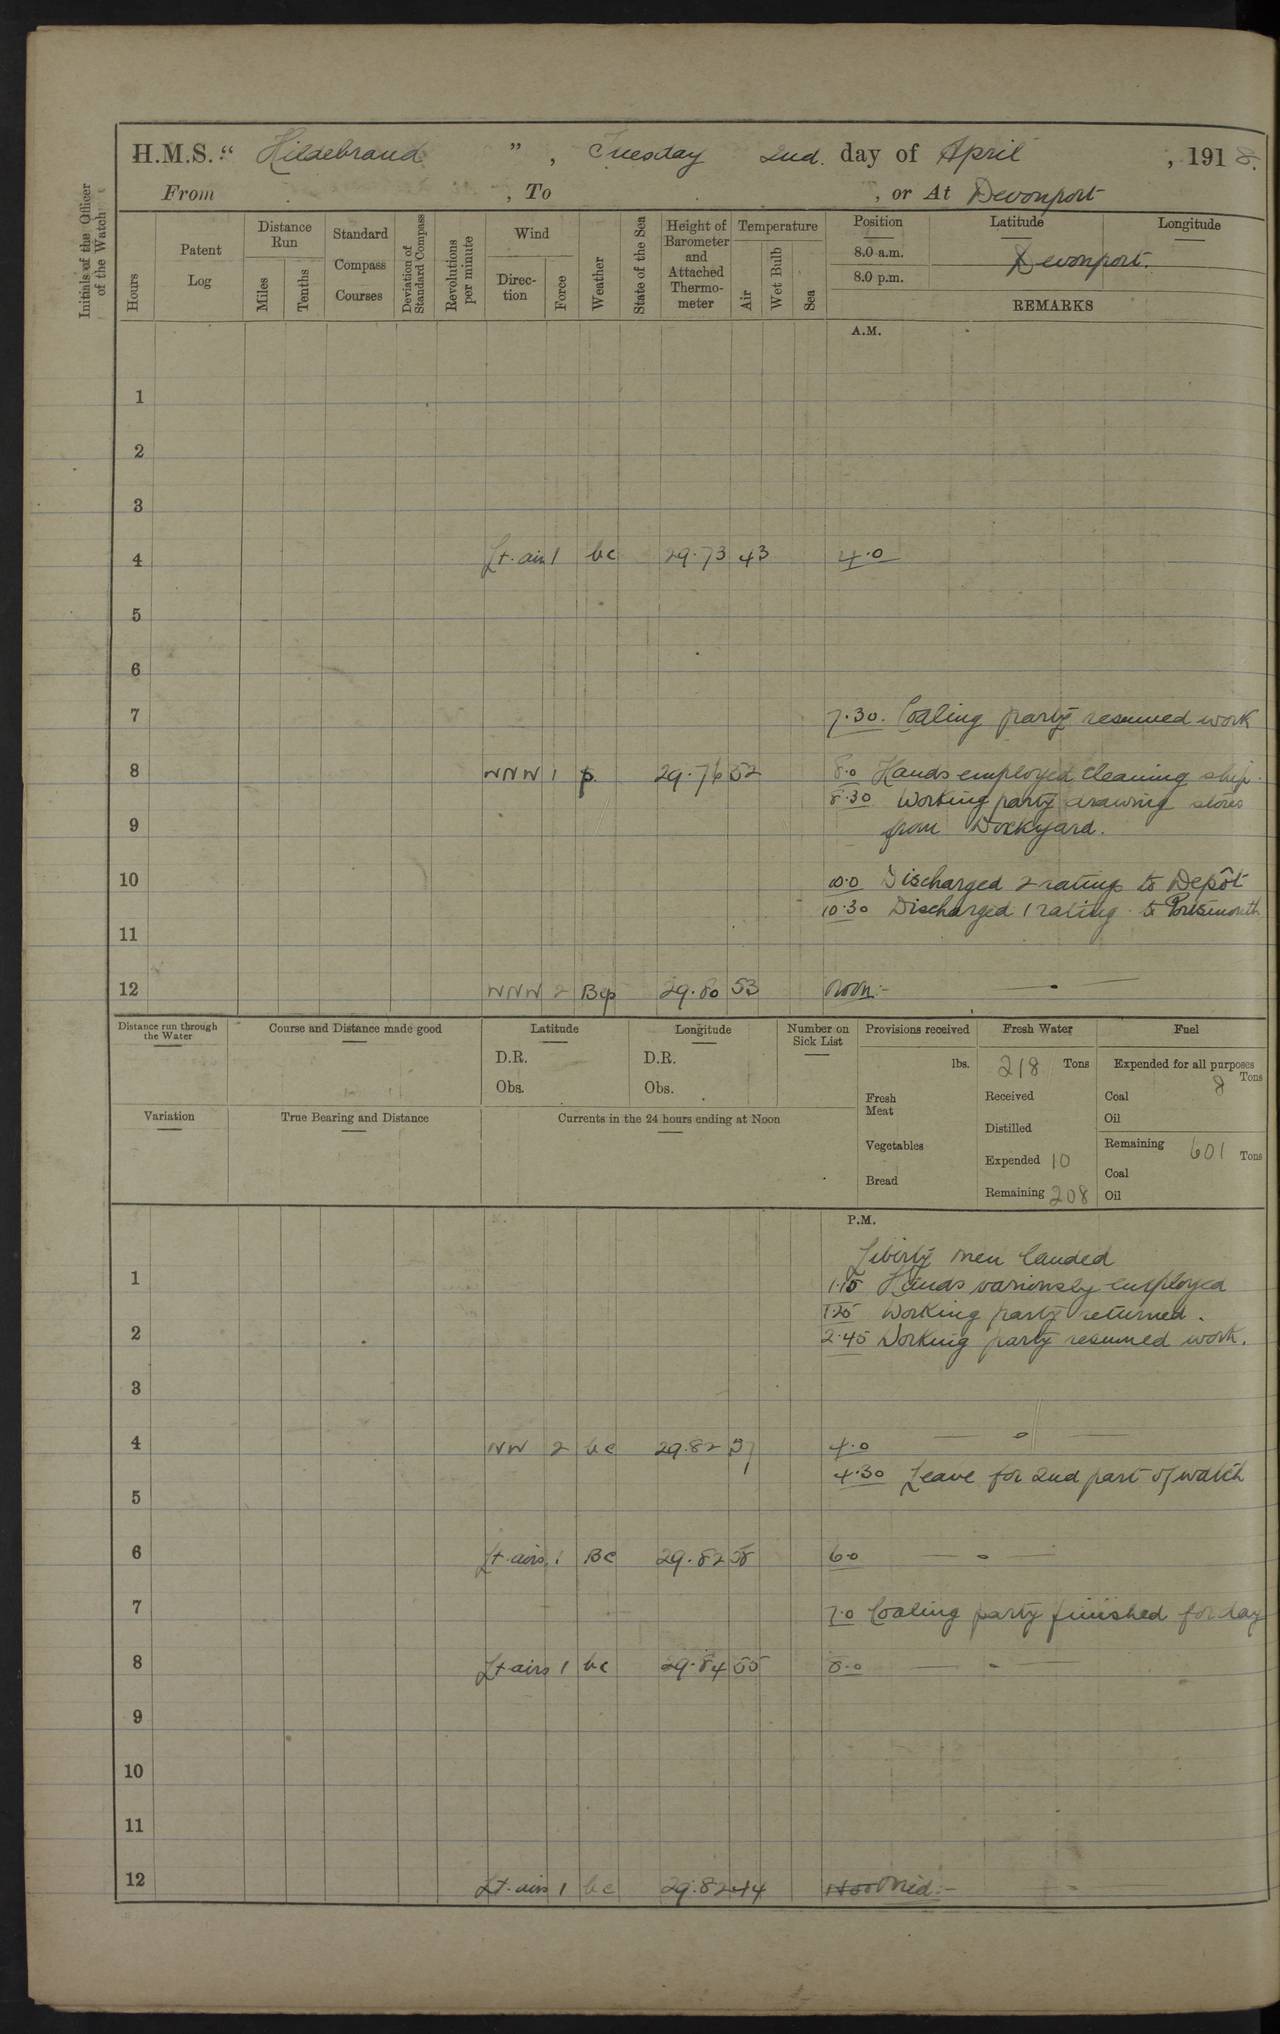 H.M.S. “ Hildebrand ” , Tuesday 2nd. day of April , 1918.
From , To , or At Devonport
Initials of the Officer of the Watch
Hours
Patent Log
Distance Run
Miles
Tenths
Standard Compass Courses
Deviation of Standard Compass
Revolutions per minute
Wind
Direc-tion
Force
Weather
State of the Sea
Height of Barometer and Attached Thermo-meter
Temperature
Air
Wet Bulb
Sea
Position
8.0 a.m.
8.0 p.m.
Latitude
Longitude
Devonport.
REMARKS
A.M.
1
2
3
4 Lt. airs 1 bc 29.73 43 4.0
5
6
7 7.30. Coaling party resumed work
8 WNW 1 p. 29.76 52 8.0 Hands employed cleaning ship.
8.30 Working party drawing stores
9 from Dockyard.
10 10.0 Discharged 2 ratings to Depôt
10.30 Discharged 1 rating to Portsmouth
11
12 WNW 2 Bcp 29.80 53 Noon:-
Distance run through the Water
Course and Distance made good
Latitude
D.R.
Obs.
Longitude
D.R.
Obs.
Number on Sick List
Provisions received
lbs.
Fresh Meat
Vegetables
Bread
Fresh Water
218 Tons
Received
Distilled
Expended 10
Remaining 208
Fuel
Expended for all purposes
8 Tons
Coal
Oil
Remaining 601 Tons
Coal
Oil
Variation
True Bearing and Distance
Currents in the 24 hours ending at Noon
P.M.
Liberty men landed
1 1.15 Hands variously employed
1.25 Working party returned.
2 2.45 Working party resumed work.
3
4 NW 2 bc 29.82 57 4.0
4.30 Leave for 2nd part of watch
5
6 Lt. airs. 1 BC 29.82 58 6.0
7 7.0 Coaling party finished for day
8 Lt airs 1 bc 29.84 55 8.0
9
10
11
12 Lt. airs 1 bc 29.82 44 Mid:-